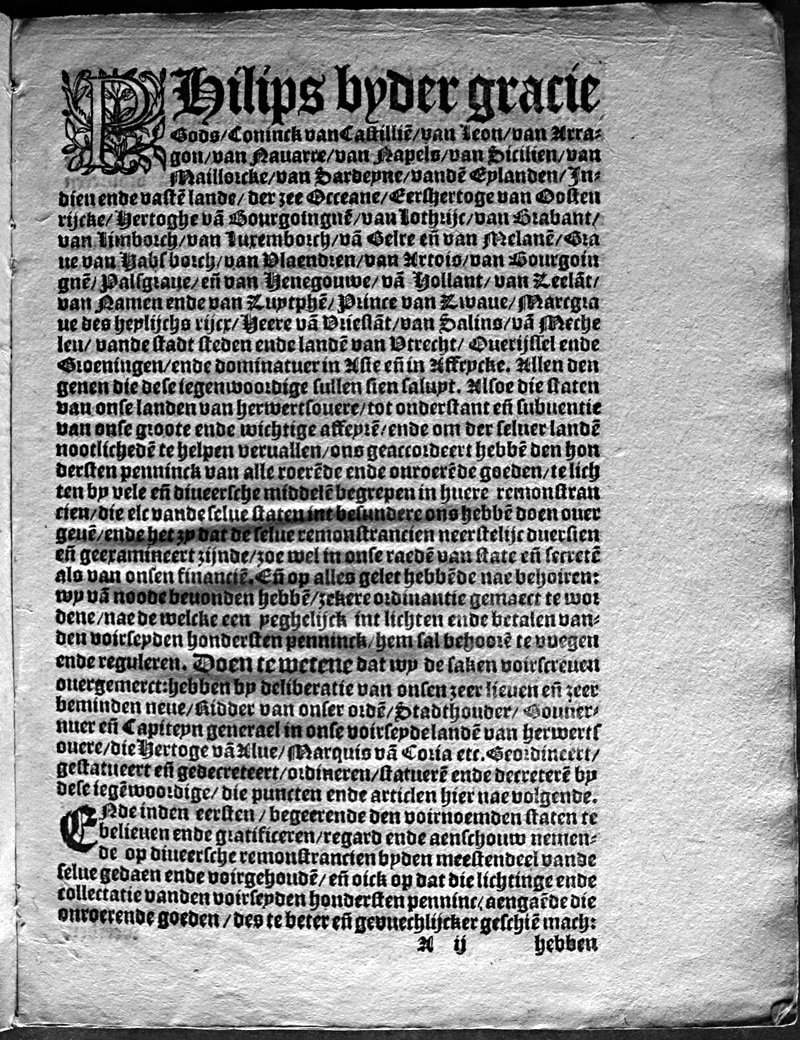 PHilips byder gracie
Gods/Coninck van Castilliē/van Leon/van Arra-
gon/van Nauarre/van Napels/van Sicilien/van
Maillorcke/van Sardeyne/vandē Eylanden/In-
dien ende vastē lande/der zee Occeane/Eertshertoge van Oosten
rijcke/Hertoghe vā Bourgoingnē/van Lothrijc/van Brabant/
van Limborch/van Luxemborch/vā Gelre eñ van Melanē/Gra
ue van Habsborch/van Vlaendren/van Artois/van Bourgoin
gnē/Palsgraue/eñ van Henegouwe/vā Hollant/van Zeelāt/
van Namen ende van Zuytphē/Prince van Zwaue/Marcgra
ue des heylijchs rijcx/Heere vā Vrieslāt/van Salins/vā Meche
len/vande stadt steden ende landē van Vtrecht/Ouerijssel ende
Groeningen/ende dominatuer in Asie eñ in Affrycke. Allen den
genen die dese iegenwoordige sullen sien saluyt. Alsoe die staten
van onse landen van herwertsouere/tot onderstant eñ subuentie
van onse groote ende wichtige affeyrē/ende om der seluer landē
nootlichedē te helpen veruallen/ons geaccordeert hebbē den hon
dersten penninck van alle roerēde ende onroerēde goeden/te lich
ten by vele eñ diueersche middelē begrepen in huere remonstran
cien/die elc vande selue staten int besundere ons hebbē doen ouer
geuē/ende het zy dat de selue remonstrancien neerstelijc duersien
eñ geexamineert zijnde/zoe wel in onse raedē van state eñ secretē
als van onsen financiē. Eñ op alles gelet hebbēde nae behoiren:
wy vā noode beuonden hebbē/zekere ordinantie gemaect te wor
dene/nae de welcke een yeghelijck int lichten ende betalen van-
den voirseyden hondersten penninck/hem sal behoorē te vuegen
ende reguleren. Doen te wetene dat wy de saken voirscreuen
ouergemerct:hebben by deliberatie van onsen zeer lieuen eñ zeer
beminden neue/Ridder van onser ordē/Stadthouder/Gouuer-
nuer eñ Capiteyn generael in onse voirseyde landē van herwerts
ouere/die Hertoge vā Alue/Marquis vā Coria etc. Geordineert/
gestatueert eñ gedecreteert/ordineren/statuerē ende decreterē by
dese iegēwoordige/die puncten ende articlen hier nae volgende.
ENde inden eersten/begeerende den voirnoemden staten te
belieuen ende gratificeren/regard ende aenschouw nemen-
de op diueersche remonstrancien byden meestendeel vande
selue gedaen ende voirgehoudē/eñ oick op dat die lichtinge ende
collectatie vanden voirseyden hondersten penninc/aengaēde die
onroerende goeden/des te beter eñ gevuechlijcker geschiē mach:
A ij hebben